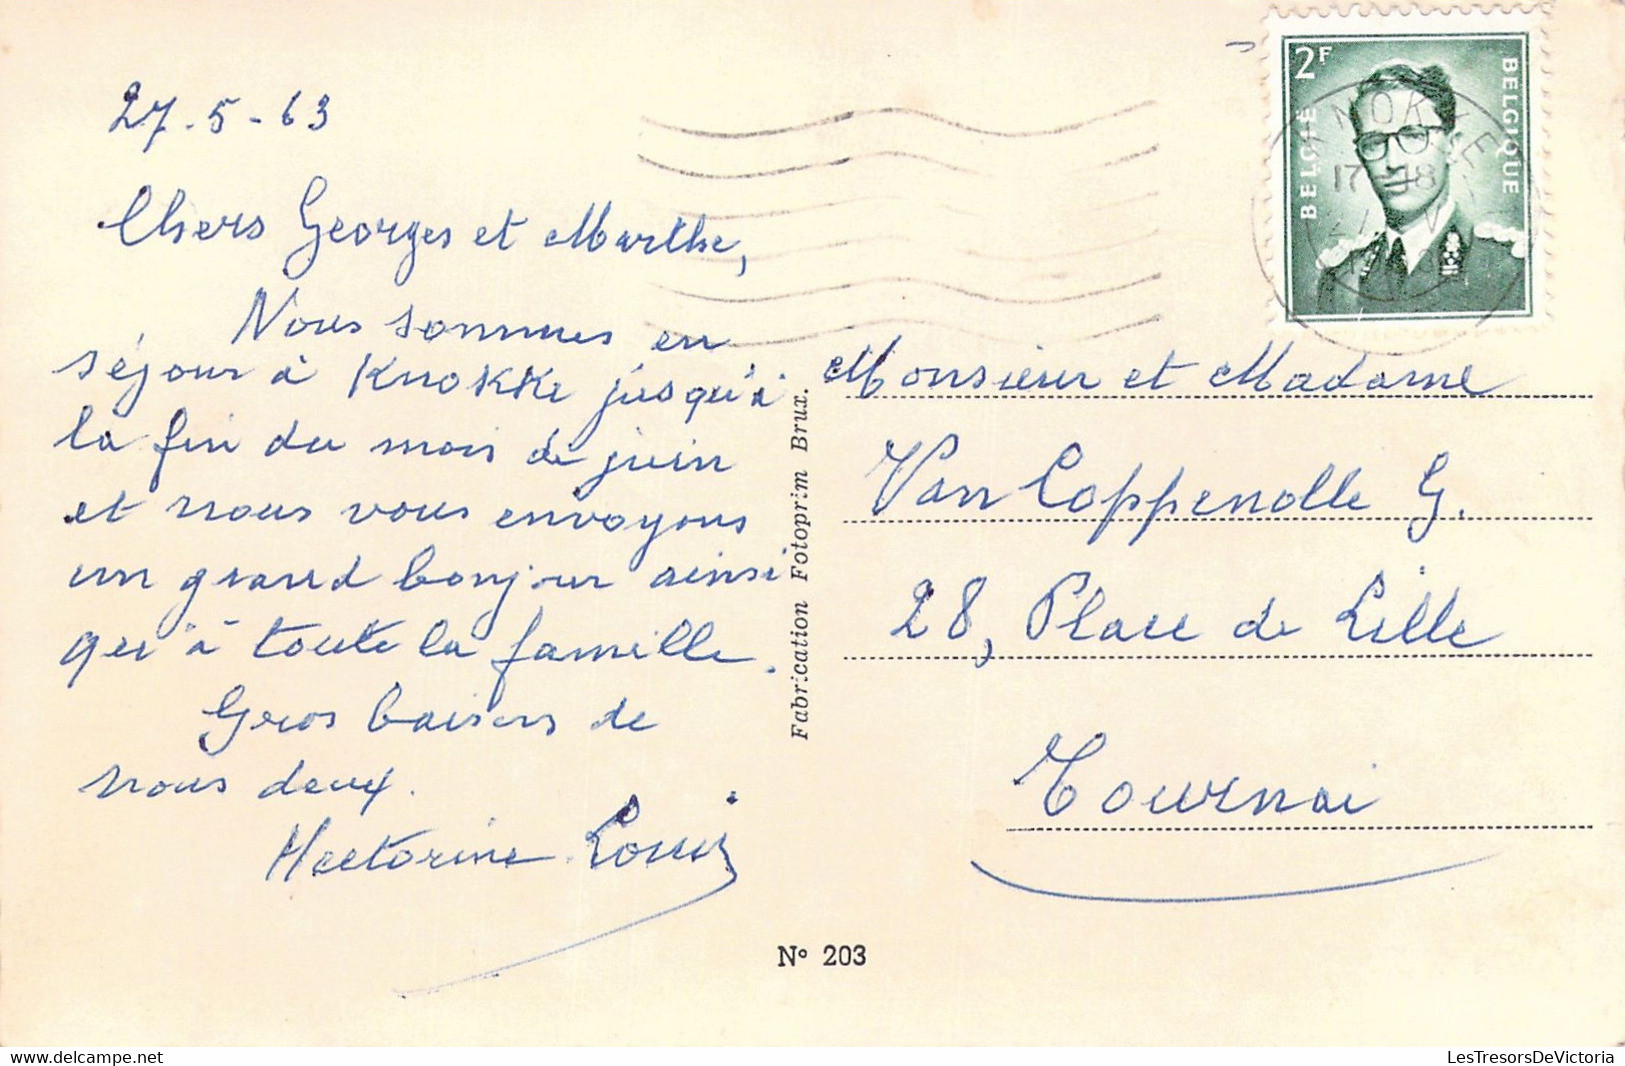 27-5-63
Chers Georges et Marthe,
Nous sommes en
séjour à Knokke jusqu'à
la fin du mois de juin
et nous vous envoyons
un grand bonjour ainsi
qu'à toute la famille.
Gros baisers de
nous deux.
Hectorine Louis
Fabrication Fotoprim Brux.
N° 203
2F
BELGIË
BELGIQUE
KNOKKE
17-18
Monsieur et Madame
Van Coppenolle G.
28, Place de Lille
Tournai
delcampe.net
LesTresorsDeVictoria